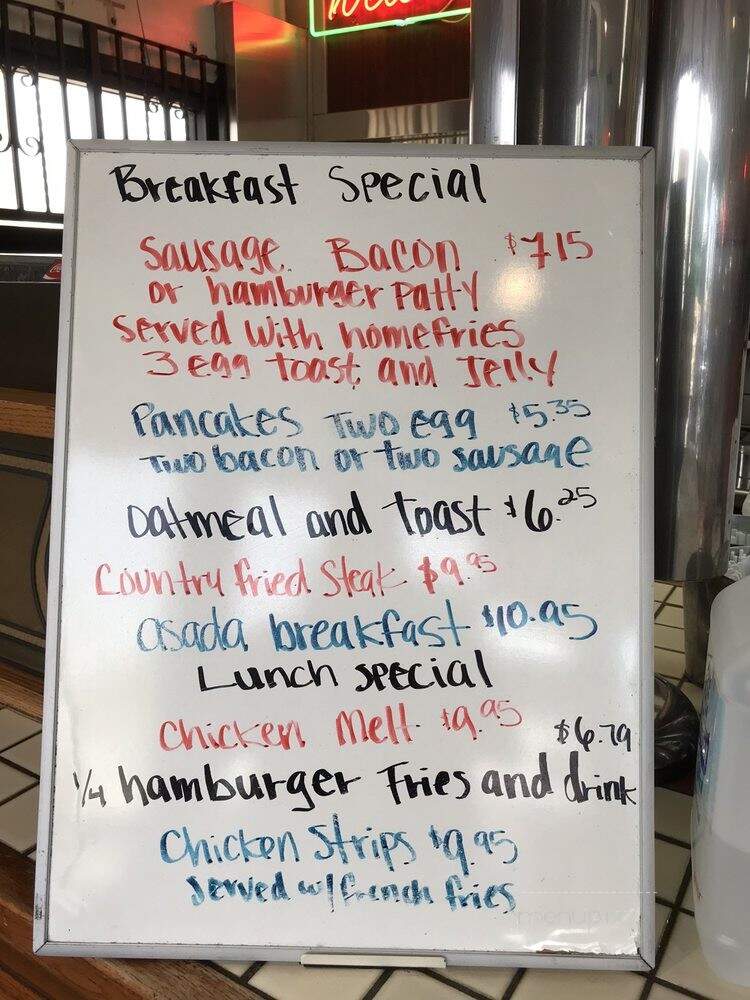 Breakfast Special
Sausage. Bacon $7.15
or hamburger patty
Served with homefries
3 egg toast and Jelly
Pancakes Two egg $5.35
Two bacon or two sausage
Oatmeal and toast $6.25
Country fried Steak $9.95
asada breakfast $10.95
Lunch special
Chicken Melt $9.95
$6.79
1/4 hamburger Fries and drink
Chicken Strips $9.95
Served w/ french fries